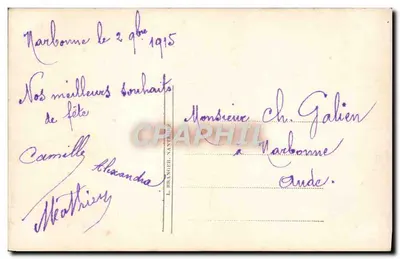 Narbonne le 2 9bre 1915
Nos meilleurs souhaits
de fête
Camille
Alexandra
Mathieu
Monsieur Ch. Galien
a Narbonne
Aude.
CPARAMA